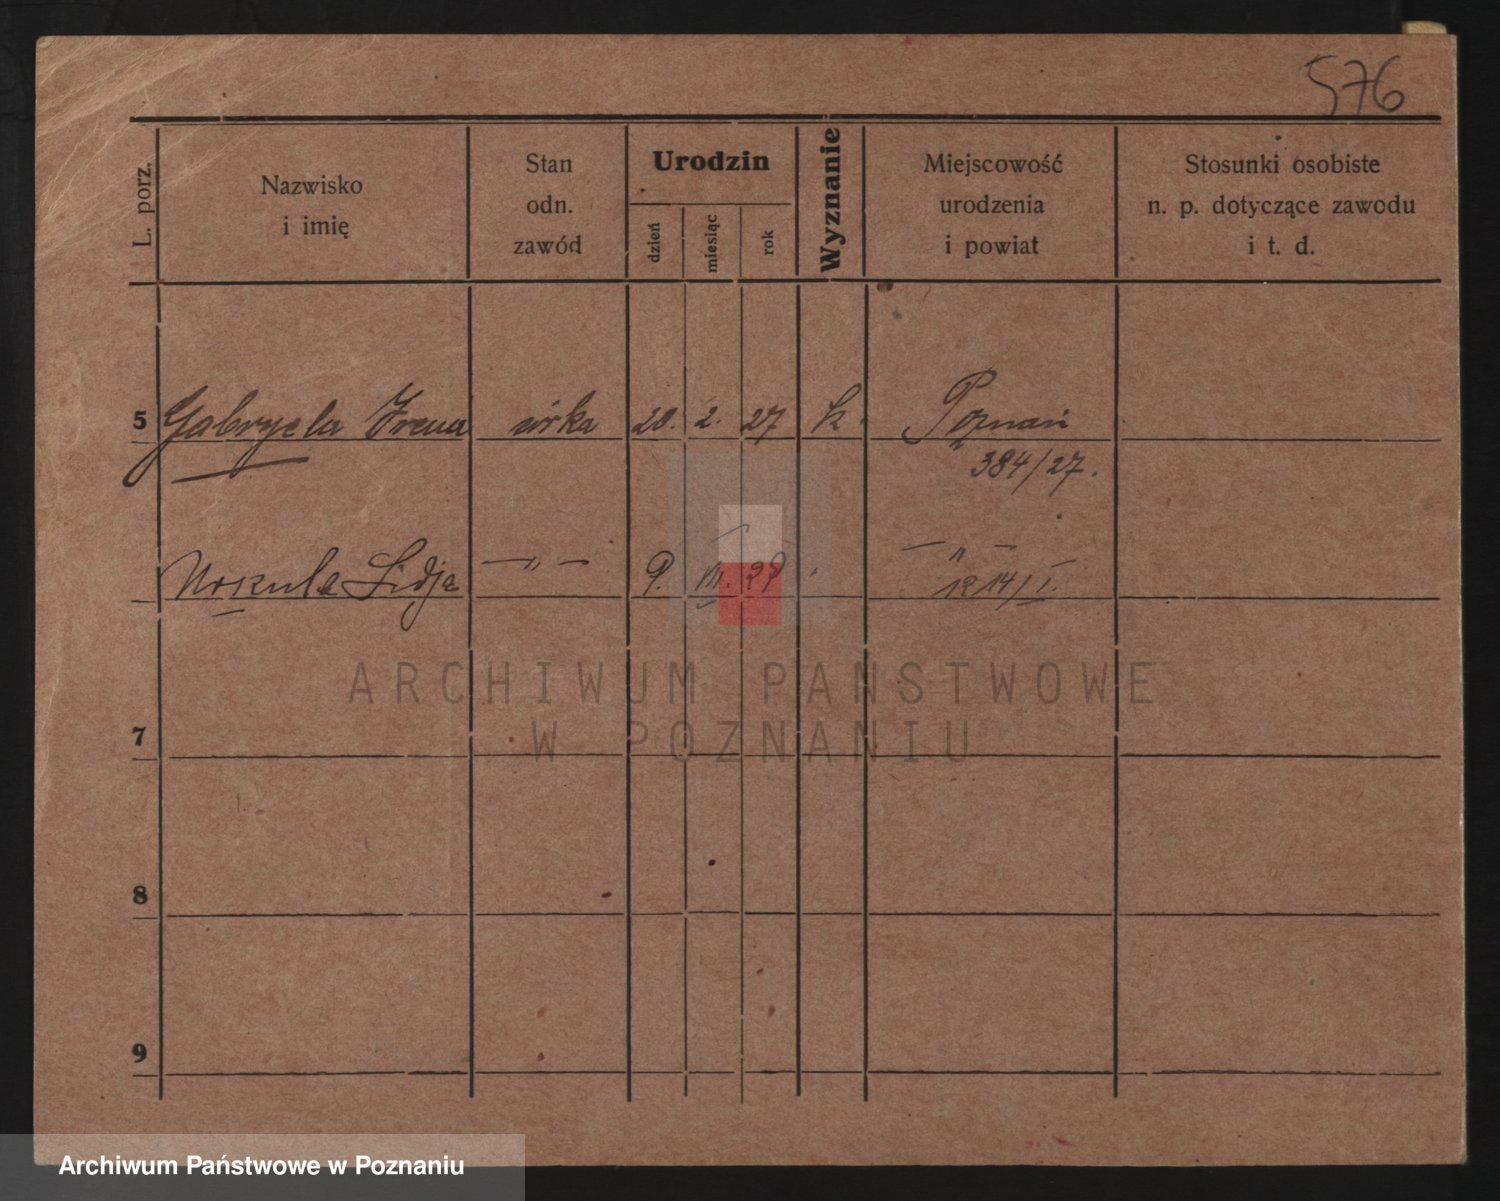 576
L. porz.
Nazwisko
i imię
Stan
odn.
zawód
Urodzin
dzień
miesiąc
rok
Wyznanie
Miejscowość
urodzenia
i powiat
Stosunki osobiste
n. p. dotyczące zawodu
i t. d.
5 Gabryela Irena córka 20. 2. 27 k. Poznań
384/27.
Urszula Lidja — " — 9. — " —
1214/I.
ARCHIWUM PAŃSTWOWE
W POZNANIU
7
8
9
Archiwum Państwowe w Poznaniu